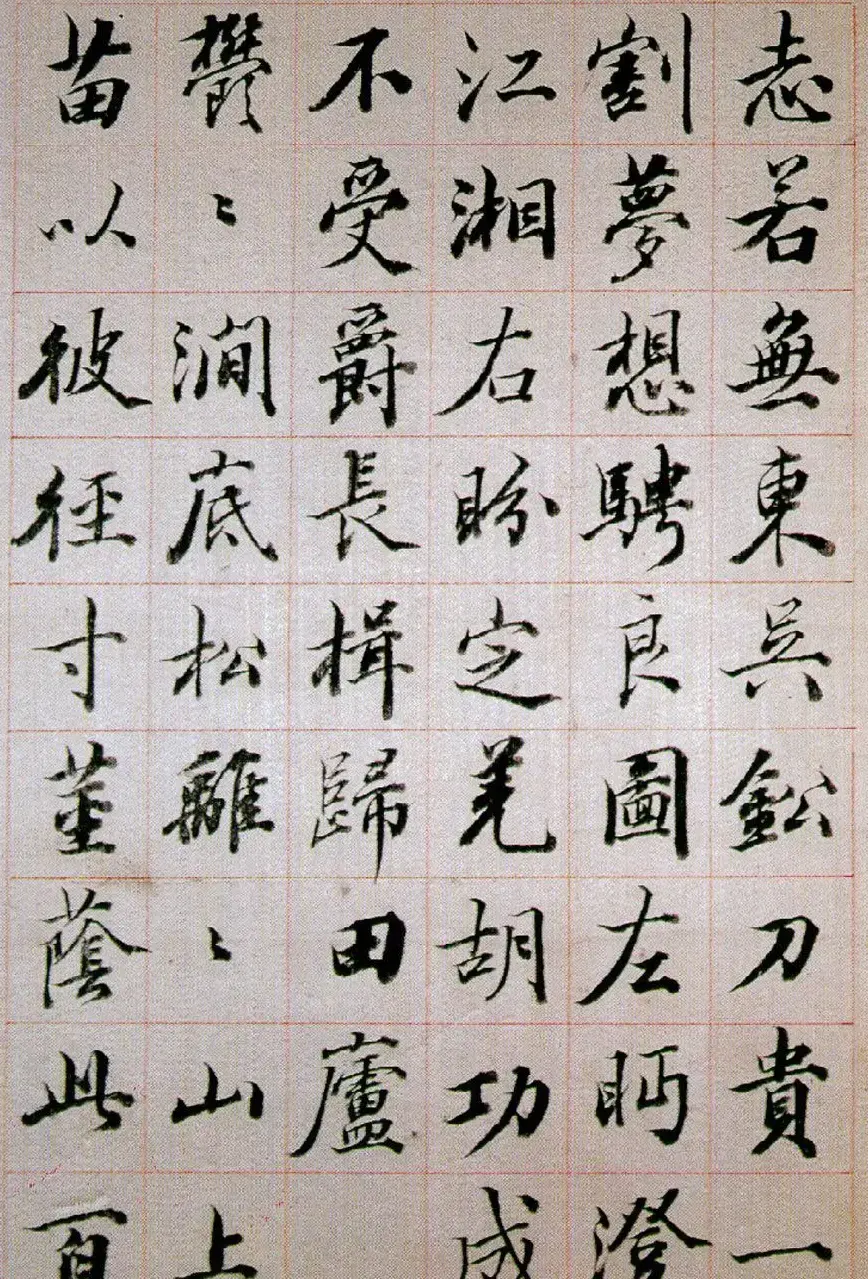 志若無東吳鈆刀貴一
割夢想騁良圖左眄澄
江湘右盼定羌胡功成
不受爵長揖歸田廬
鬱〻澗底松離〻山上
苗以彼徑寸莖蔭此百